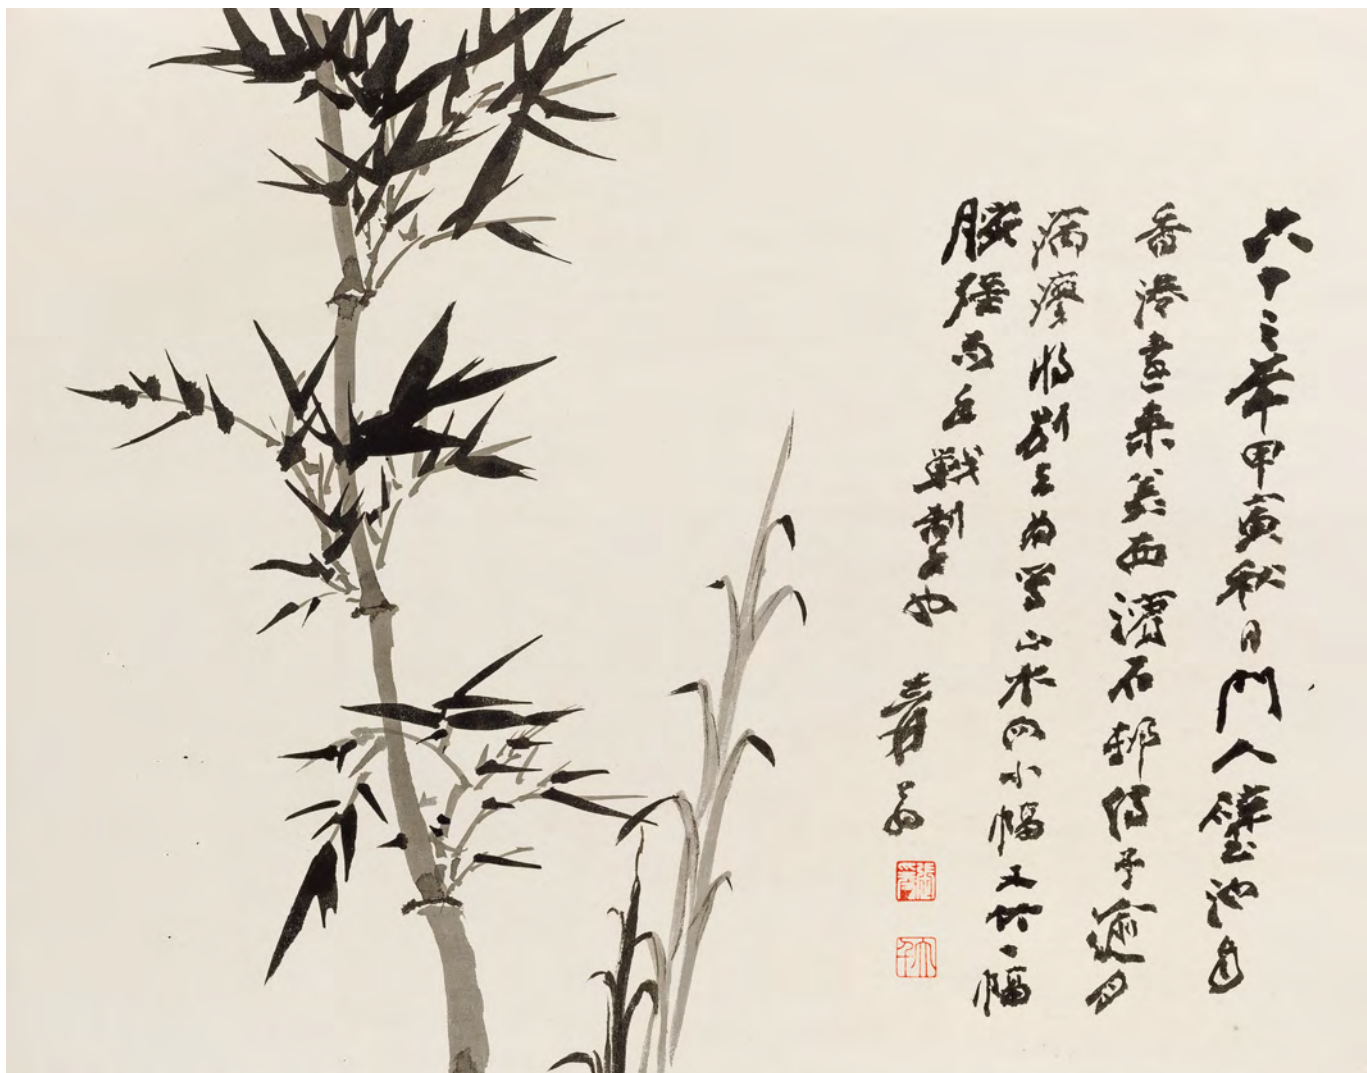 六十三年甲寅秋日門人璧池自
香港重來美西濱石鄉侍予逾月
病瘳將別去為寫山水四小幅又竹一幅
腕殭而戰掣也
爰翁
張爰
大千